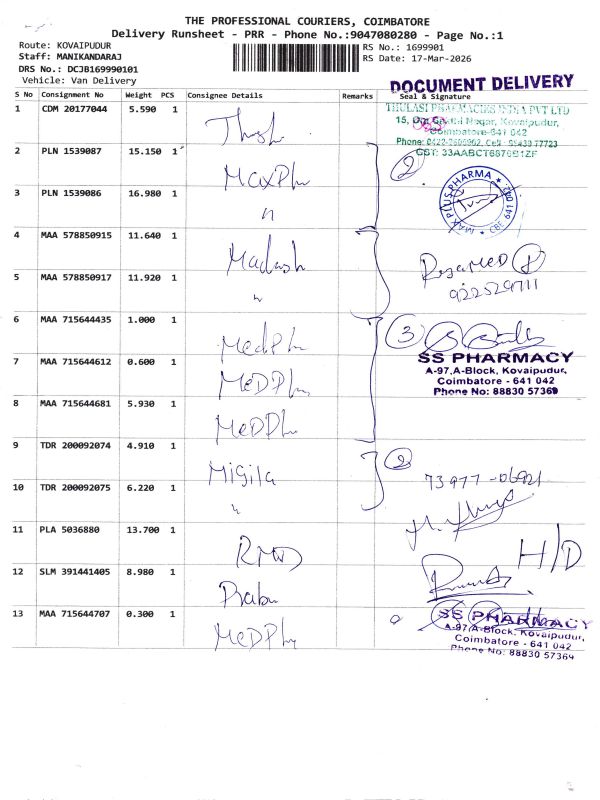 THE PROFESSIONAL COURIERS, COIMBATORE
Delivery Runsheet - PRR - Phone No.:9047080280 - Page No.:1
Route: KOVAIPUDUR
Staff: MANIKANDARAJ
DRS No.: DCJB169990101
Vehicle: Van Delivery
RS No.: 1699901
RS Date: 17-Mar-2026
DOCUMENT DELIVERY
S No Consignment No Weight PCS Consignee Details Remarks Seal & Signature
THULASI PHARMACIES INDIA PVT LTD
1 CDM 20177044 5.590 1
Kovaipudur,
Coimbatore-641 042
2 PLN 1539087 15.150 1 MaxPh
GST: 33AABCT6876B1ZF
2
3 PLN 1539086 16.980 1 "
MAX PLUS PHARMA ★ CBE 641 042 ★
4 MAA 578850915 11.640 1 Madash
5 MAA 578850917 11.920 1 "
9225529711
6 MAA 715644435 1.000 1 MedPh
3
SS PHARMACY
A-97,A-Block, Kovaipudur,
Coimbatore - 641 042
Phone No: 88830 57369
7 MAA 715644612 0.600 1 MeDPh
8 MAA 715644681 5.930 1 MeDPh
9 TDR 200092074 4.910 1 Migila
2
73977-06921
10 TDR 200092075 6.220 1 "
11 PLA 5036880 13.700 1 RMD
H/D
12 SLM 391441405 8.980 1 Prabu
13 MAA 715644707 0.300 1 MeDPh
SS PHARMACY
A-97,A-Block, Kovaipudur,
Coimbatore - 641 042
Phone No: 88830 57369